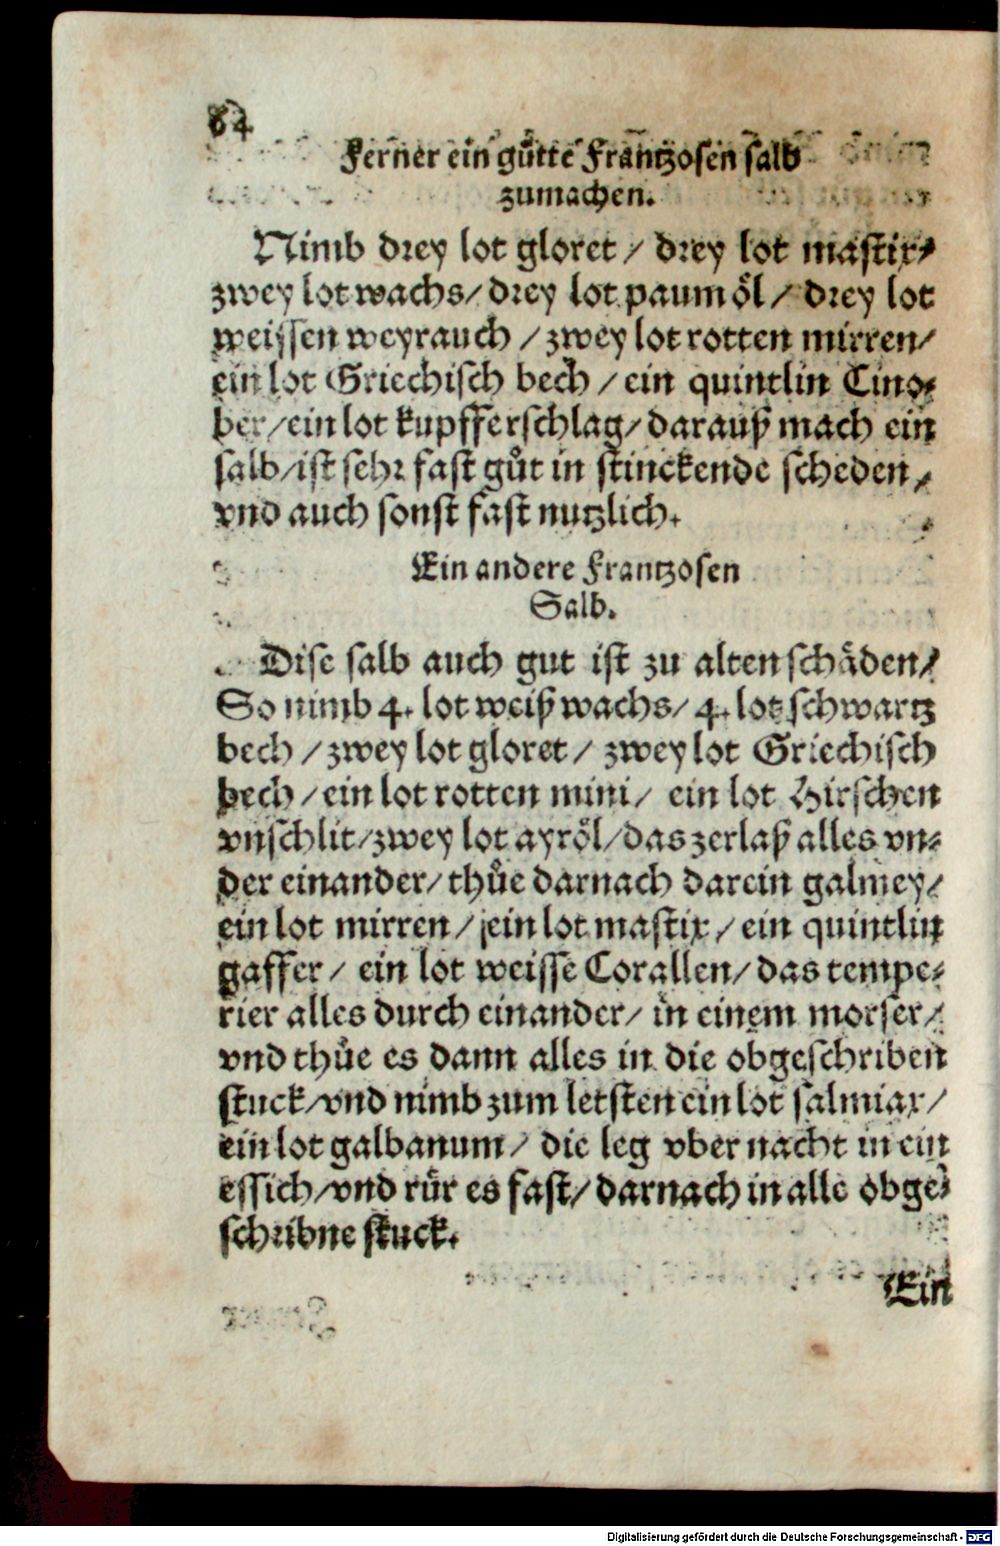 64
Ferner ein gůtte Frantzosen salb
zumachen.
Nimb drey lot gloret / drey lot mastix /
zwey lot wachs / drey lot paum öl / drey lot
weissen weyrauch / zwey lot rotten mirren /
ein lot Griechisch bech / ein quintlin Cino⸗
ber / ein lot kupfferschlag / darauß mach ein
salb / ist sehr fast gůt in stinckende scheden /
vnd auch sonst fast nutzlich.
Ein andere Frantzosen
Salb.
Dise salb auch gut ist zu alten schäden /
So nimb 4. lot weiß wachs / 4. lot schwartz
bech / zwey lot gloret / zwey lot Griechisch
bech / ein lot rotten mini / ein lot Hirschen
vnschlit / zwey lot ayröl / das zerlaß alles vn⸗
der einander / thůe darnach darein galmey /
ein lot mirren / ein lot mastix / ein quintlin
gaffer / ein lot weisse Corallen / das tempe⸗
rier alles durch einander / in einem morser /
vnd thůe es dann alles in die obgeschriben
stuck / vnd nimb zum letsten ein lot salmiax /
ein lot galbanum / die leg vber nacht in ein
essich / vnd rür es fast / darnach in alle obge⸗
schribne stuck.
Ein
Digitalisierung gefördert durch die Deutsche Forschungsgemeinschaft - DFG